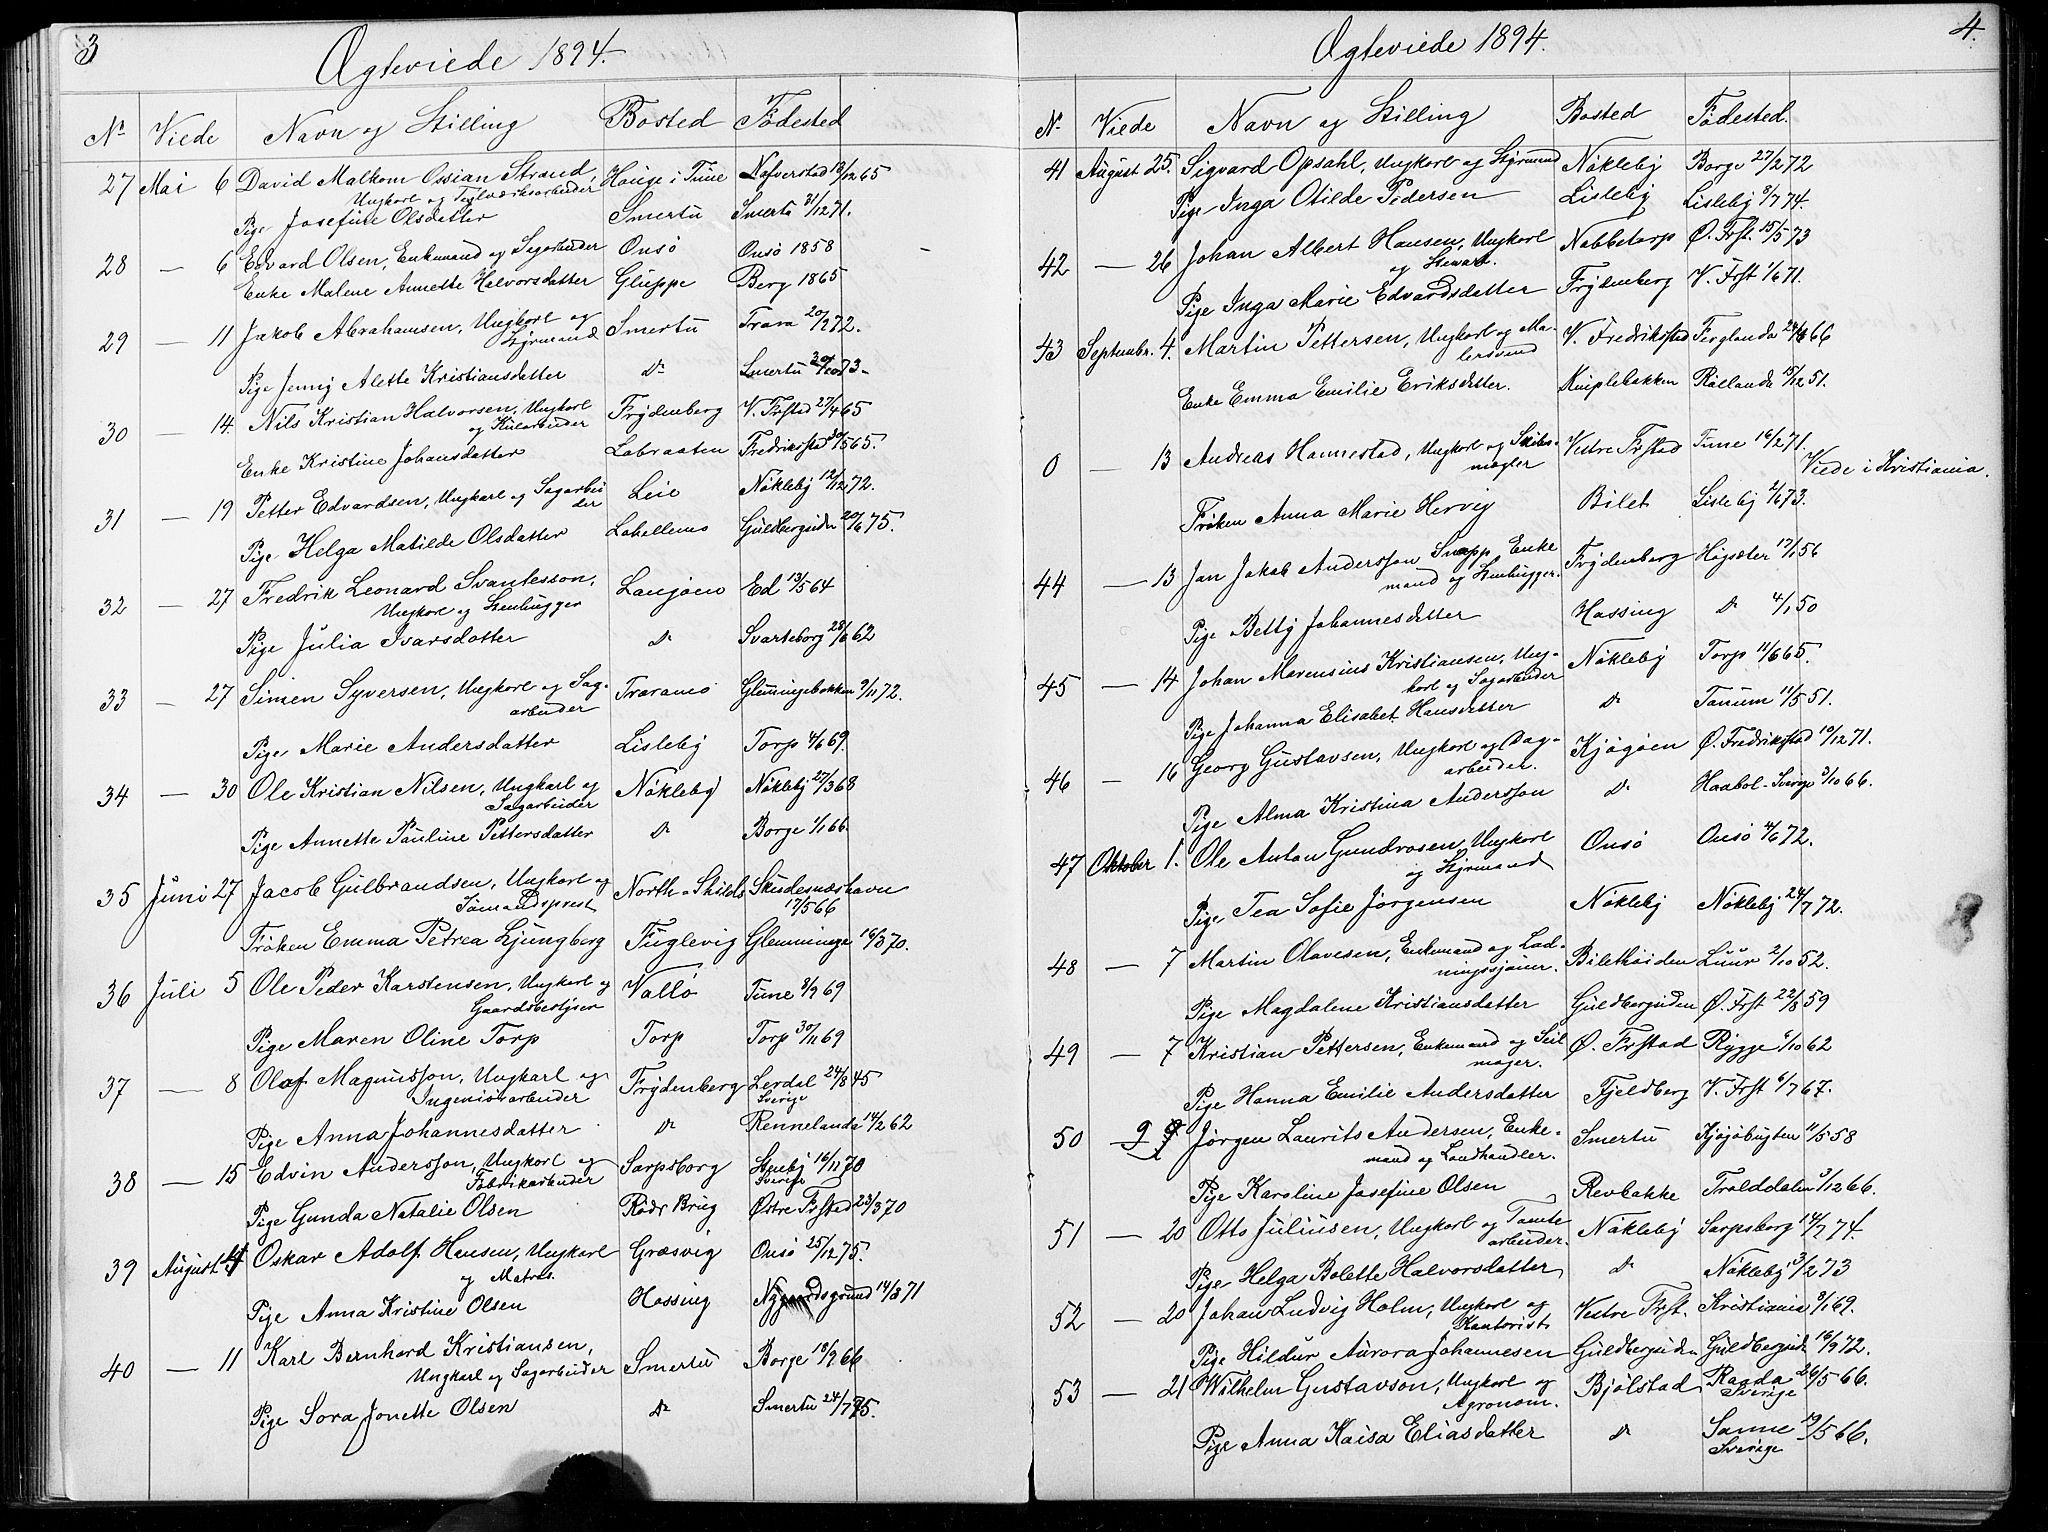 3
Ægteviede 1894.
No Viede Navn og Stilling Bosted Födested
27 Mai 6 David Malkom Ossian Strand, Hauge i Tune Nafverstad 13/12 65
Ungkarl og Teglværksarbeider
Pige Josefine Olsdatter Smertu Smertu 31/12 71.
28 — 6 Edvard Olsen, Enkemand og Sagarbeider Onsö Onsö 1858
Enke Malene Annette Halvorsdatter Gluppe Berg 1865
29 — 11 Jakob Abrahamsen, Ungkarl og Smertu Trara 20/2 72.
Styrmand
Pige Jenny Alette Kristiansdatter Do Smertu 30/10 73
30 — 14. Nils Kristian Halvorsen, Ungkarl Frydenberg V. Frstad 27/4 65
og Kularbeider
Enke Kristine Johansdatter Labraaten Fredrikstad 30/5 65.
31 — 19 Petter Edvardsen, Ungkarl og Sagarbei Leie Nökleby 12/12 72.
der
Pige Helga Matilde Olsdatter Lahellemo Guldbergsiden 20/6 75.
32 — 27 Fredrik Leonard Svantesson, Langöen Ed 13/5 64
Ungkarl og Stenhugger
Pige Julia Ivarsdatter Do Svarteborg 28/6 62
33 — 27 Simen Syversen, Ungkarl og Sag- Traramo Glemmingebakken 9/11 72.
arbeider
Pige Marie Andersdatter Lisleby Torp 4/6 69.
34 — 30 Ole Kristian Nilsen, Ungkarl og Nökleby Nökleby 27/3 68
Sagarbeider
Pige Annette Pauline Pettersdatter Do Borge 1/1 66.
35 Juni 27 Jacob Gulbrandsen, Ungkarl og North-Shilds Skudesnæshavn
Sömandsprest 17/5 66
Fröken Emma Petrea Ljungberg Fuglevig Glemminge 16/3 70.
36 Juli 5 Ole Peder Karstensen, Ungkarl og Vallö Tune 8/9 69
Gaardsbestyrer
Pige Maren Oline Torp Torp Torp 30/11 69
37 — 8 Olaf Magnusson, Ungkarl og Frydenberg Lerdal 24/8 45
Ingeniörarbeider Sverige
Pige Anna Johannesdatter Do Rennelanda 14/2 62
38 — 15 Edvin Andersson, Ungkarl og Sarpsborg Stenby 16/11 70
Fabrikarbeider Sverige
Pige Gunda Natalie Olsen Röds Brug Östre Frstad 23/3 70
39 August 4 Oskar Adolf Hansen, Ungkarl Græsvig Onsö 25/12 75.
og Matros.
Pige Anna Kristine Olsen Hassing Nygaardsgrund 14/8 71
40 — 11 Karl Bernhard Kristiansen, Smertu Borge 18/9 66
Ungkarl og Sagarbeider
Pige Sora Jonette Olsen Do Smertu 24/7 75.
4.
Ægteviede 1894.
No Viede Navn og Stilling Bosted Födested.
41 August 25. Sigvard Opsahl, Ungkarl og Styrmand Nökleby Borge 27/2 72
Pige Inga Otilde Pedersen Lisleby Lisleby 8/7 74.
42 — 26 Johan Albert Hansen, Ungkarl Nabbetorp Ö. Frst. 15/5 73
og Stewart.
Pige Inga Marie Edvardsdatter Frydenberg V. Frst 1/6 71.
43 Septembr. 4. Martin Pettersen, Ungkarl og Ma- V. Fredrikstad Ferglanda 24/6 66
lersvend
Enke Emma Emilie Eriksdatter. Kniplebakken Rölanda 15/12 51.
0 — 13 Andreas Hannestad, Ungkarl og Skibs- Vestre Frstad Tune 16/2 71. Viede i Kristiania.
mægler
Fröken Anna Marie Hervig Bilet Lisleby 2/6 73.
44 — 13 Jan Jakob Andersson Snapp Enke Frydenberg Högsæter 17/1 56
mand og Stenhugger.
Pige Betty Johannesdatter Hassing Do 4/1 50
45 — 14 Johan Marensius Kristiansen, Ung- Nökleby Torp 11/6 65.
karl og Sagarbeider
Pige Johanna Elisabet Hansdatter Do Tanum 11/5 51.
46 — 16 Georg Gustavsen, Ungkarl og Dag- Kjögöen Ö. Fredrikstad 10/12 71.
arbeider.
Pige Alma Kristina Andersson Do Haabol-Sverige 3/10 66.
47 Oktober 1. Ole Anton Gundrosen, Ungkarl Onsö Onsö 4/6 72.
og Styrmand
Pige Tea Sofie Jörgensen Nökleby Nökleby 24/7 72.
48 — 7 Martin Olavesen, Enkemand og Lad- Biletheiden Luur 2/10 52.
ningssjauer.
Pige Magdalene Kristiansdatter Guldbergsiden Ö. Frst 22/8 59
49 — 7 Kristian Pettersen, Enkemand og Seil Ö. Frstad Rygge 6/10 62
mager.
Pige Hanna Emilie Andersdatter Fjeldberg V. Frst 6/7 67.
50 — 9 Jörgen Laurits Andersen, Enke- Smertu Kjöjöbugten 11/5 58
mand og Landhandler.
Pige Karoline Josefine Olsen Revbakke Trolddalen 3/12 66.
51 — 20 Otto Juliusen, Ungkarl og Tomte Nökleby Sarpsborg 14/7 74.
arbeider.
Pige Helga Bolette Halvorsdatter Do Nökleby 3/2 73
52 — 20 Johan Ludvig Holm, Ungkarl og Vestre Frst. Kristiania 8/1 69.
Kontorist
Pige Hildur Aurora Johannesen Guldbergsiden Guldbergsid 16/9 72.
53 — 21 Wilhelm Gustavson, Ungkarl og Bjölstad Raada 26/5 66.
Agronom. Sverige
Pige Anna Kaisa Eliasdatter Do Sanne 19/5 66.
Sverige